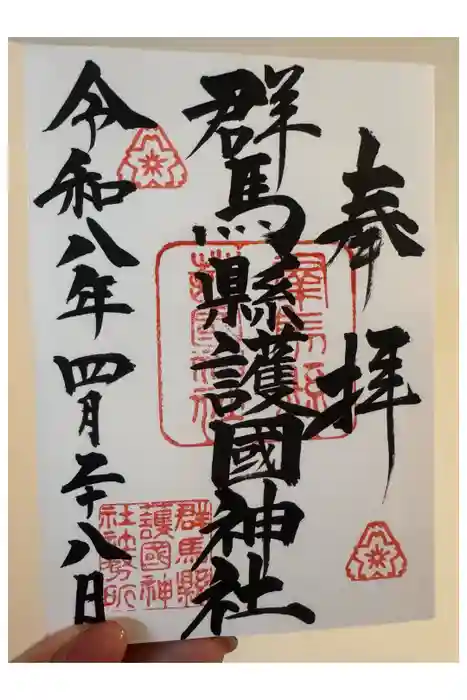 奉拝
群馬縣護國神社
令和八年四月二十八日
群馬縣
護國神
社社務所